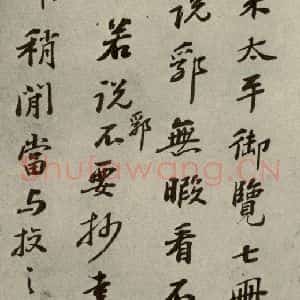 太平御覽七冊
說郛無暇看不
若說郛不要抄
稍閒當与投之
Shufawang.CN